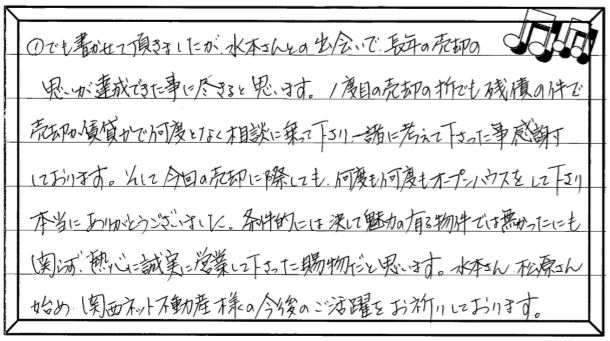 ①でも書かせて頂きましたが、水本さんとの出会いで、長年の売却の
思いが達成できた事に尽きると思います。1度目の売却の折でも残債の件で
売却か賃貸かで何度となく相談に乗って下さり、一緒に考えて下さった事感謝
しております。そして今回の売却に際しても、何度も何度もオープンハウスをして下さり
本当にありがとうございました。条件的には決して魅力の有る物件では無かったにも
関らず、熱心に誠実に営業して下さった賜物だと思います。水本さん、松原さん
始め、関西ネット不動産様の今後のご活躍をお祈りしております。